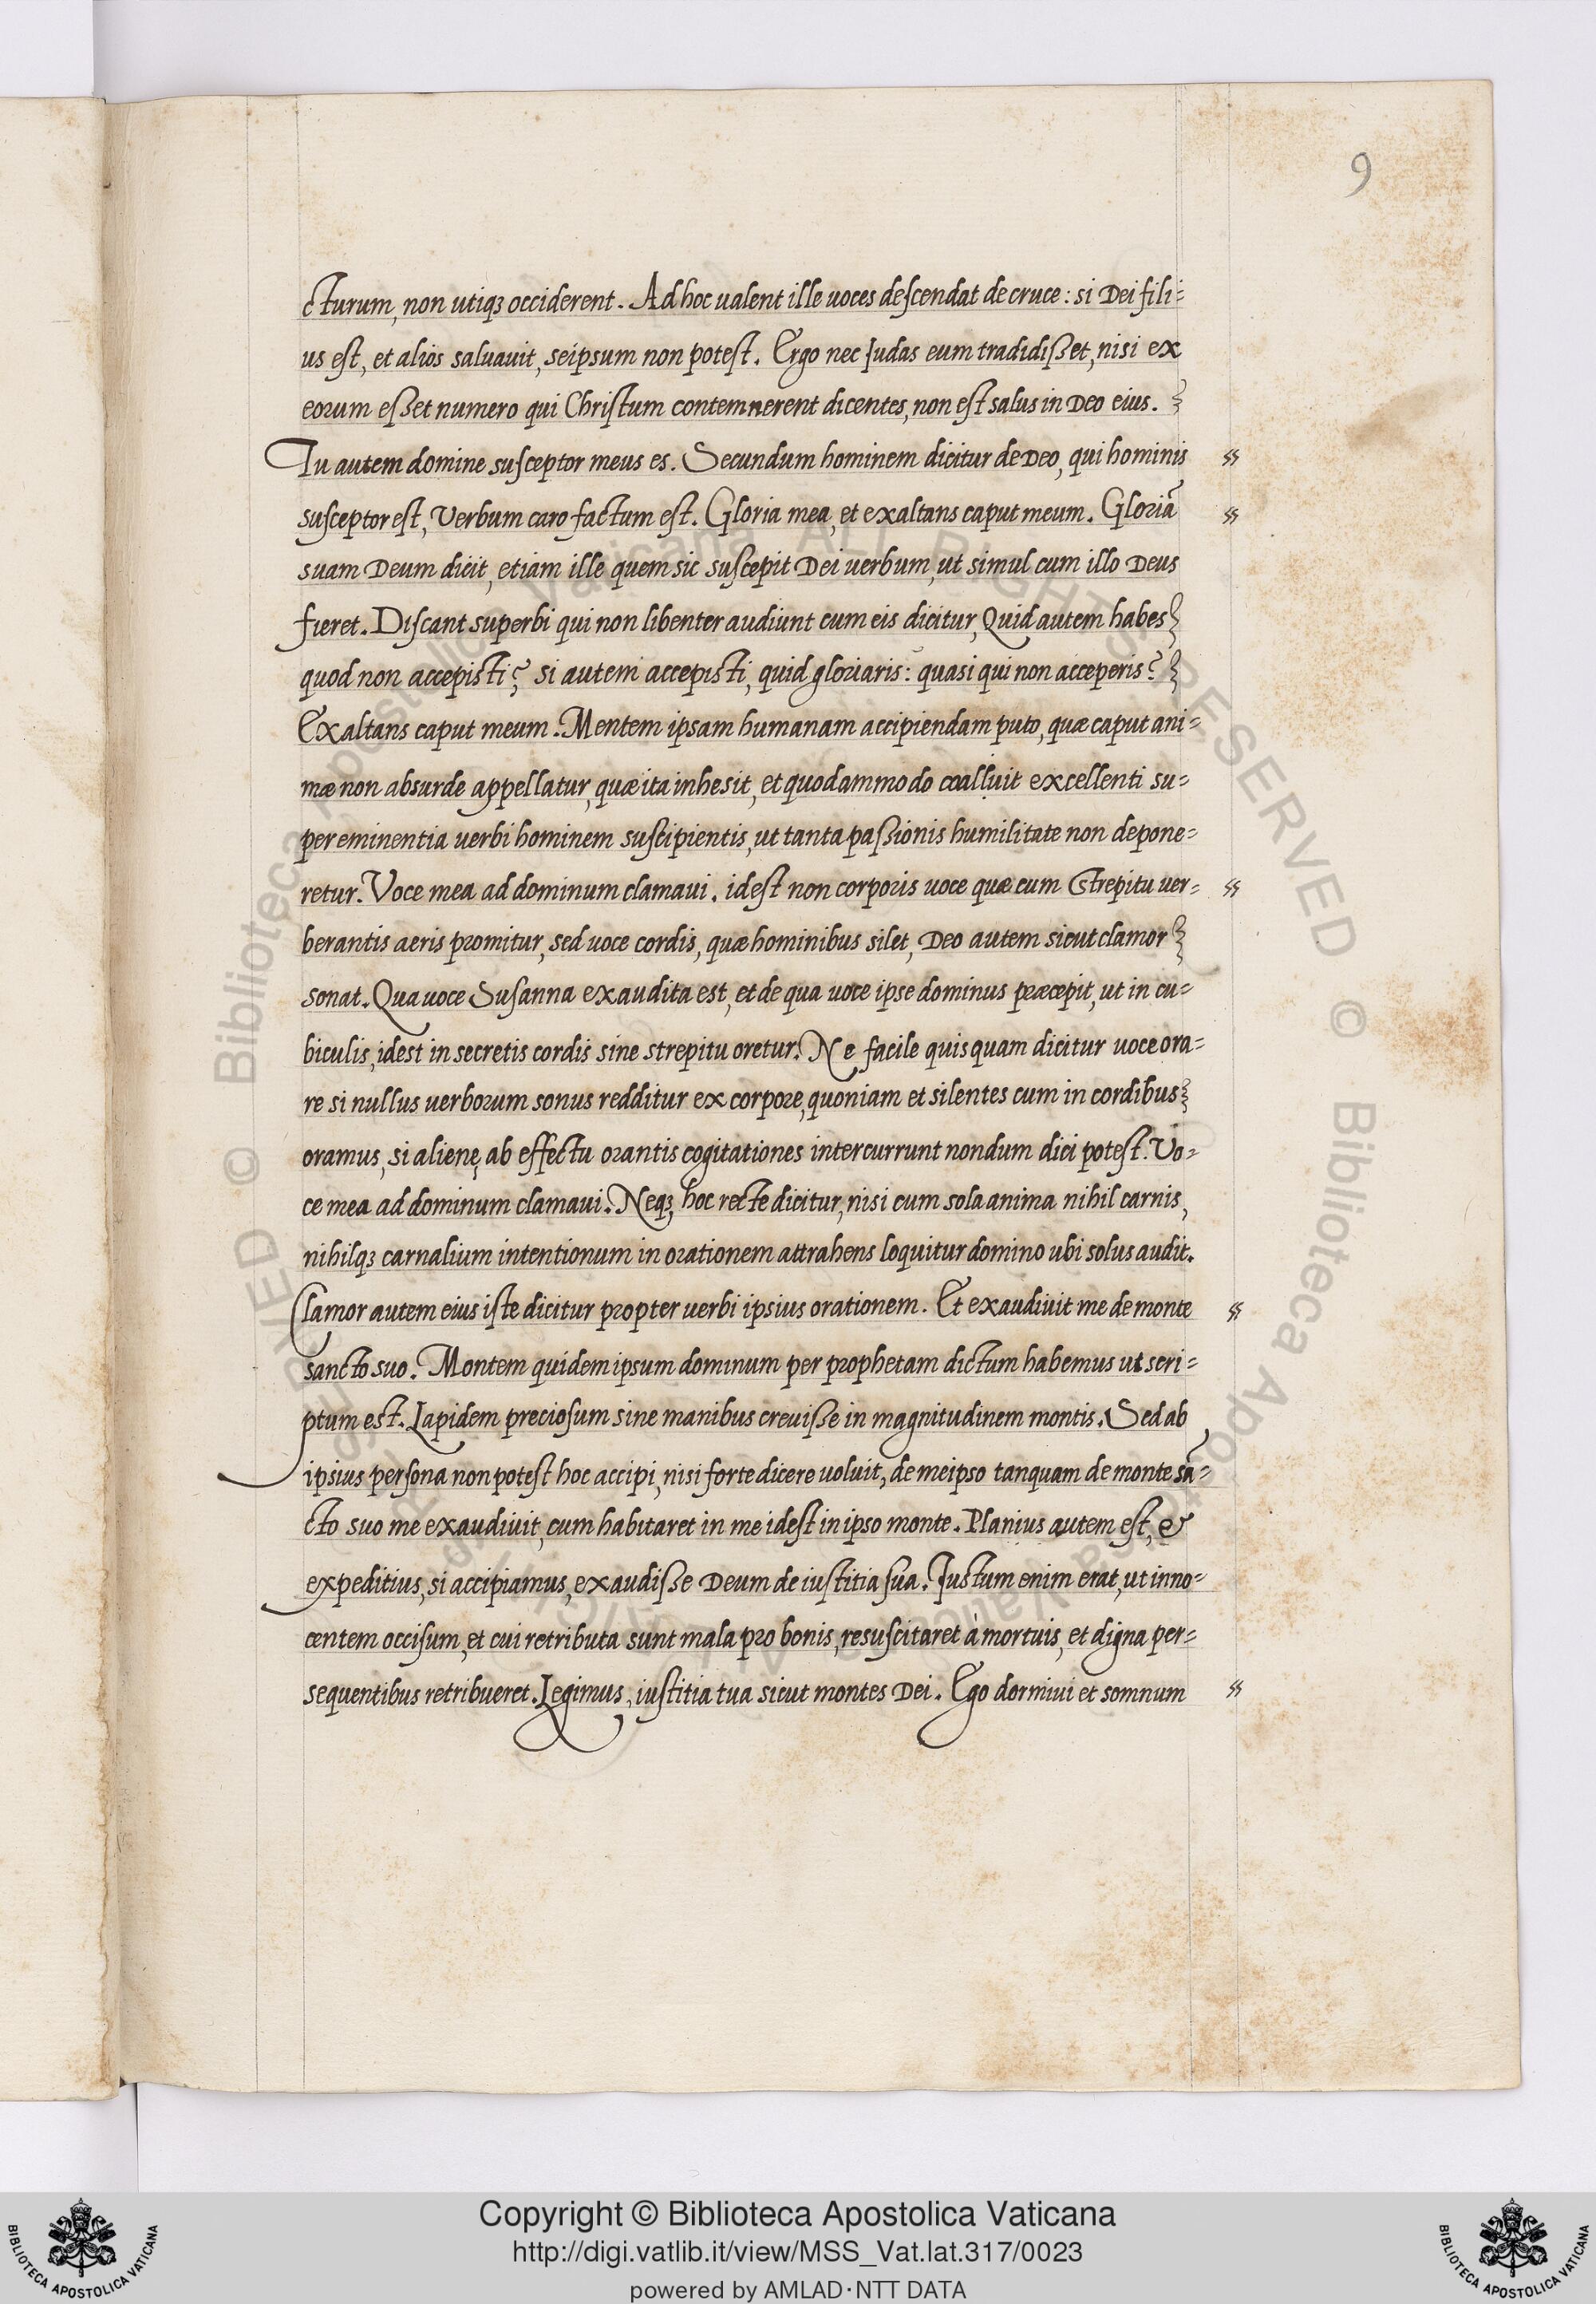 9
cturum, non utiqꝫ occiderent. Ad hoc ualent ille uoces descendat de cruce: si Dei fili=
us est, et alios saluauit, seipsum non potest. Ergo nec Judas eum tradidisset, nisi ex
eorum esset numero qui Christum contemnerent dicentes, non est salus in Deo eius.
Tu autem domine susceptor meus es. Secundum hominem dicitur de Deo, qui hominis
susceptor est, Verbum caro factum est. Gloria mea, et exaltans caput meum. Gloriã
suam Deum dicit, etiam ille quem sic suscepit Dei uerbum, ut simul cum illo Deus
fieret. Discant superbi qui non libenter audiunt cum eis dicitur, Quid autem habes
quod non accepisti? si autem accepisti, quid gloriaris: quasi qui non acceperis?
Exaltans caput meum. Mentem ipsam humanam accipiendam puto, quæ caput ani=
mæ non absurde appellatur, quæ ita inhesit, et quodammodo coalluit excellenti su=
pereminentia uerbi hominem suscipientis, ut tanta passionis humilitate non depone=
retur. Voce mea ad dominum clamaui. idest non corporis uoce quæ cum strepitu uer=
berantis aeris promitur, sed uoce cordis, quæ hominibus silet, Deo autem sicut clamor
sonat. Qua uoce Susanna exaudita est, et de qua uoce ipse dominus præcepit, ut in cu=
biculis, idest in secretis cordis sine strepitu oretur. Ne facile quisquam dicitur uoce ora=
re si nullus uerborum sonus redditur ex corpore, quoniam et silentes cum in cordibus
oramus, si alienę ab effectu orantis cogitationes intercurrunt nondum dici potest. Vo=
ce mea ad dominum clamaui. Neqꝫ hoc recte dicitur, nisi cum sola anima nihil carnis,
nihilqꝫ carnalium intentionum in orationem attrahens loquitur domino ubi solus audit.
Clamor autem eius iste dicitur propter uerbi ipsius orationem. Et exaudiuit me de monte
sancto suo. Montem quidem ipsum dominum per prophetam dictum habemus ut scri=
ptum est. Lapidem preciosum sine manibus creuisse in magnitudinem montis. Sed ab
ipsius persona non potest hoc accipi, nisi forte dicere uoluit, de meipso tanquam de monte sã=
cto suo me exaudiuit, cum habitaret in me idest in ipso monte. Planius autem est, &
expeditius, si accipiamus, exaudisse Deum de iustitia sua. Justum enim erat, ut inno=
centem occisum, et cui retributa sunt mala pro bonis, resuscitaret à mortuis, et digna per=
sequentibus retribueret. Legimus, iustitia tua sicut montes Dei. Ego dormiui et somnum
Copyright © Biblioteca Apostolica Vaticana
http://digi.vatlib.it/view/MSS_Vat.lat.317/0023
powered by AMLAD·NTT DATA
BIBLIOTECA APOSTOLICA VATICANA
BIBLIOTECA APOSTOLICA VATICANA